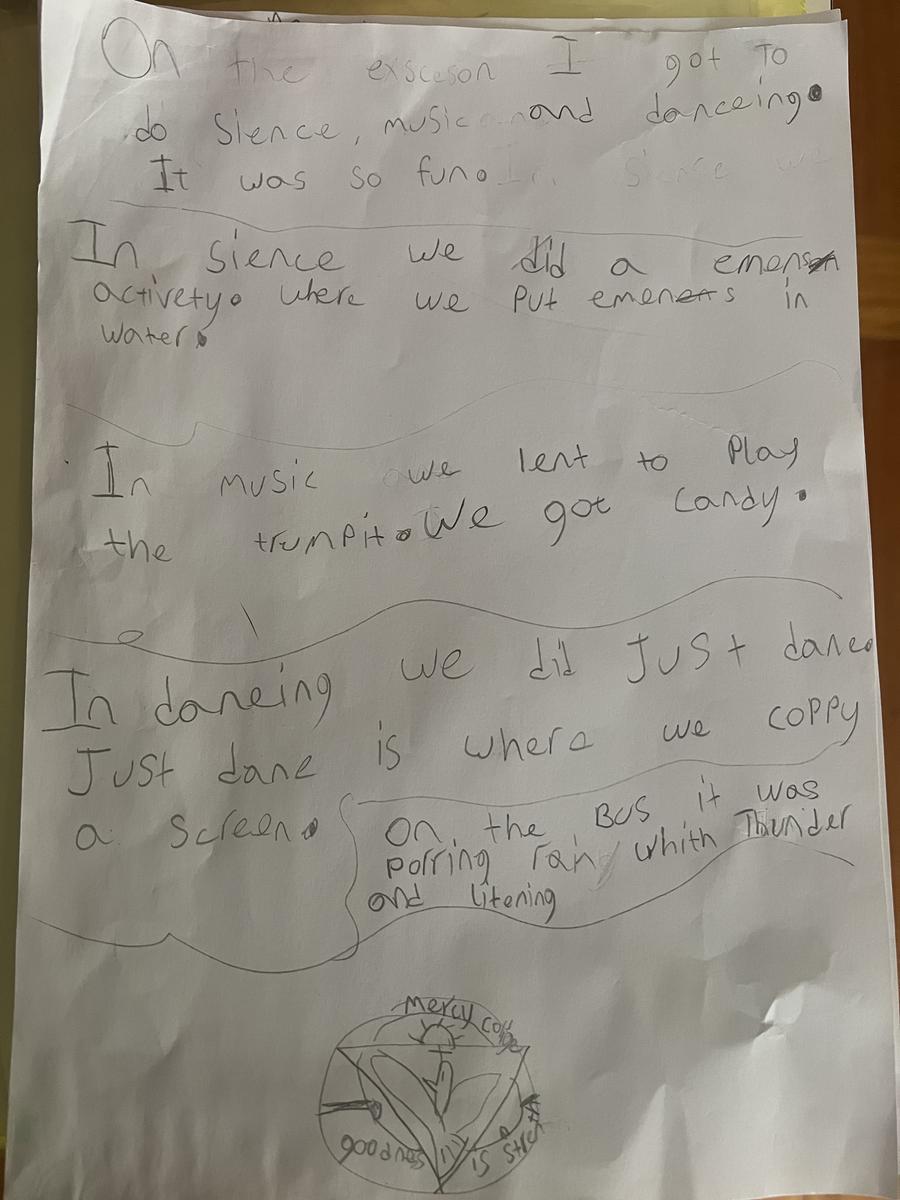 On the exsceson I got To
do Sience, music and danceing.
It was so fun. In sience we
In sience we did a emensen
activety. where we put emenets in
water.
In music we lent to Play
the trumpit. We got candy.
In dancing we did Just danc.
Just danc is where we coppy
a screen.
On the Bus it was
porring rain whith Thunder
and litening
Mercy
is